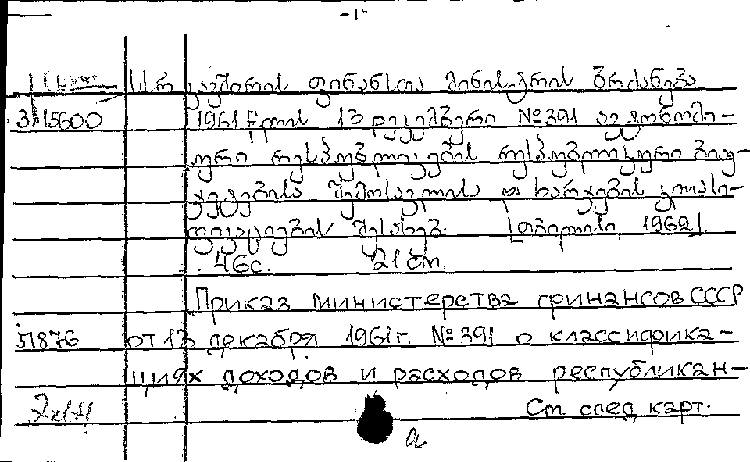 -1-
სსრ კავშირის ფინანსთა მინისტრის ბრძანება
3 15600 1961 წლის 13 დეკემბერი №391 ავტონომი-
ური რესპუბლიკების რესპუბლიკური ბიუ-
ჯეტების შემოსავლის და ხარჯების კლასი-
ფიკაციების შესახებ. [თბილისი 1962].
46с. 21 см.
Приказ министерства финансов СССР
51876 от 13 декабря 1961г. №391 о классифика-
циях доходов и расходов республикан-
См след карт.